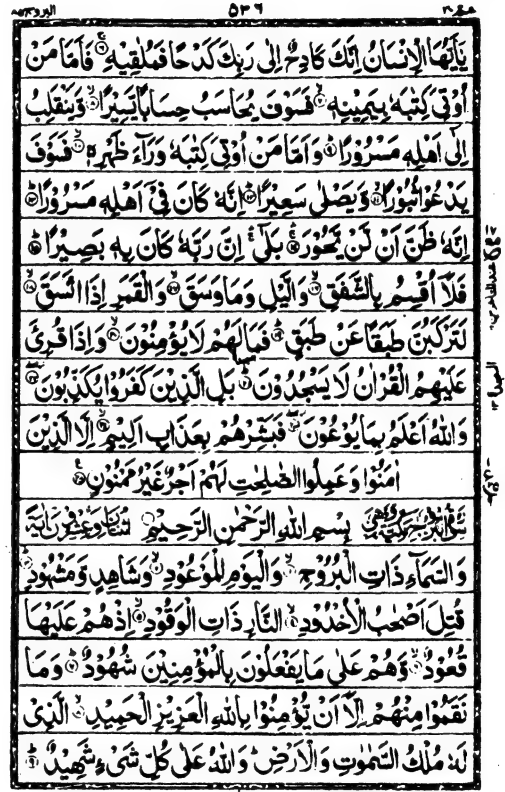 عمّ ٣٠ ٥٣٦ البروج ٨٥
يٰٓاَيُّهَا الْاِنْسَانُ اِنَّكَ كَادِحٌ اِلٰى رَبِّكَ كَدْحًا فَمُلٰقِيْهِ ۚ﴿٦﴾ فَاَمَّا مَنْ
اُوْتِيَ كِتٰبَهٗ بِيَمِيْنِهٖ ۙ﴿٧﴾ فَسَوْفَ يُحَاسَبُ حِسَابًا يَّسِيْرًا ۙ﴿٨﴾ وَّيَنْقَلِبُ
اِلٰٓى اَهْلِهٖ مَسْرُوْرًا ؕ﴿٩﴾ وَاَمَّا مَنْ اُوْتِيَ كِتٰبَهٗ وَرَآءَ ظَهْرِهٖ ۙ﴿١٠﴾ فَسَوْفَ
يَدْعُوْا ثُبُوْرًا ۙ﴿١١﴾ وَّيَصْلٰى سَعِيْرًا ؕ﴿١٢﴾ اِنَّهٗ كَانَ فِيْٓ اَهْلِهٖ مَسْرُوْرًا ؕ﴿١٣﴾
اِنَّهٗ ظَنَّ اَنْ لَّنْ يَّحُوْرَ ۚۛ﴿١٤﴾ بَلٰٓى ۚۛ اِنَّ رَبَّهٗ كَانَ بِهٖ بَصِيْرًا ؕ﴿١٥﴾
فَلَآ اُقْسِمُ بِالشَّفَقِ ۙ﴿١٦﴾ وَالَّيْلِ وَمَا وَسَقَ ۙ﴿١٧﴾ وَالْقَمَرِ اِذَا اتَّسَقَ ۙ﴿١٨﴾
لَتَرْكَبُنَّ طَبَقًا عَنْ طَبَقٍ ؕ﴿١٩﴾ فَمَا لَهُمْ لَا يُؤْمِنُوْنَ ۙ﴿٢٠﴾ وَاِذَا قُرِئَ
عَلَيْهِمُ الْقُرْاٰنُ لَا يَسْجُدُوْنَ ؕ﴿٢١﴾ بَلِ الَّذِيْنَ كَفَرُوْا يُكَذِّبُوْنَ ۖ﴿٢٢﴾
وَاللّٰهُ اَعْلَمُ بِمَا يُوْعُوْنَ ۖ﴿٢٣﴾ فَبَشِّرْهُمْ بِعَذَابٍ اَلِيْمٍ ۙ﴿٢٤﴾ اِلَّا الَّذِيْنَ
اٰمَنُوْا وَعَمِلُوا الصّٰلِحٰتِ لَهُمْ اَجْرٌ غَيْرُ مَمْنُوْنٍ ﴿٢٥﴾
بِسْمِ اللّٰهِ الرَّحْمٰنِ الرَّحِيْمِ
وَالسَّمَآءِ ذَاتِ الْبُرُوْجِ ۙ﴿١﴾ وَالْيَوْمِ الْمَوْعُوْدِ ۙ﴿٢﴾ وَشَاهِدٍ وَّمَشْهُوْدٍ ؕ﴿٣﴾
قُتِلَ اَصْحٰبُ الْاُخْدُوْدِ ۙ﴿٤﴾ النَّارِ ذَاتِ الْوَقُوْدِ ۙ﴿٥﴾ اِذْ هُمْ عَلَيْهَا
قُعُوْدٌ ۙ﴿٦﴾ وَّهُمْ عَلٰى مَا يَفْعَلُوْنَ بِالْمُؤْمِنِيْنَ شُهُوْدٌ ؕ﴿٧﴾ وَمَا
نَقَمُوْا مِنْهُمْ اِلَّآ اَنْ يُّؤْمِنُوْا بِاللّٰهِ الْعَزِيْزِ الْحَمِيْدِ ۙ﴿٨﴾ الَّذِيْ
لَهٗ مُلْكُ السَّمٰوٰتِ وَالْاَرْضِ ؕ وَاللّٰهُ عَلٰى كُلِّ شَيْءٍ شَهِيْدٌ ؕ﴿٩﴾
السجدة ١٣